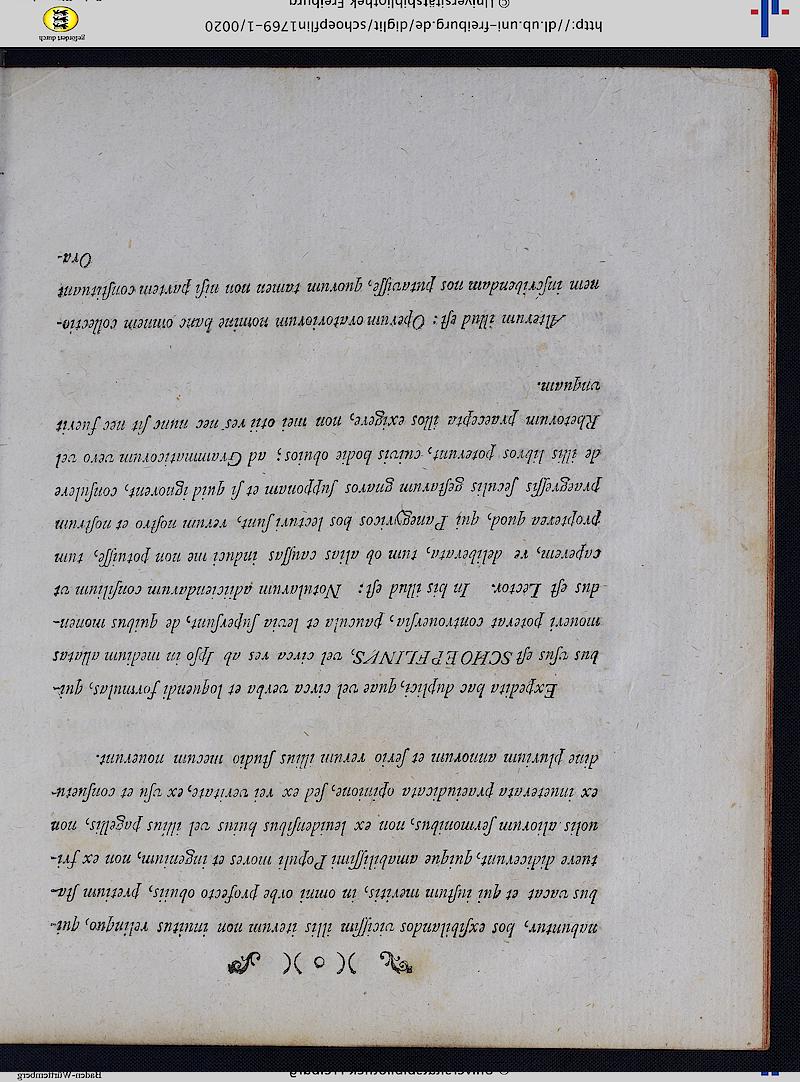 )( o )(
nabuntur, hos exſibilandos viciſſim illis iterum non inuitus relinquo, qui-
bus vacat et qui iuſtum meritis, in omni orbe profecto obuiis, pretium ſta-
tuere didicerunt, quique amabiliſſimi Populi mores et ingenium, non ex fri-
uolis aliorum ſermonibus, non ex leuidenſibus huius vel illius pagellis, non
ex inueterata praeiudicata opinione, ſed ex rei veritate, ex vſu et conſuetu-
dine plurium annorum et ſerio rerum illius ſtudio mecum nouerunt.
Expedita hac duplici, quae vel circa verba et loquendi formulas, qui-
bus vſus eſt SCHOEPFLINVS, vel circa res ab Ipſo in medium allatas
moueri poterat controuerſia, paucula et leuia ſuperſunt, de quibus monen-
dus eſt Lector. In his illud eſt: Notularum adiiciendarum conſilium vt
caperem, re deliberata, tum ob alias cauſſas induci me non potuiſſe, tum
propterea quod, qui Panegyricos hos lecturi ſunt, rerum noſtro et noſtrum
praegreſſis ſeculis geſtarum gnaros ſupponam et ſi quid ignorent, conſulere
de illis libros poterunt, cuiuis hodie obuios; ad Grammaticorum vero vel
Rhetorum praecepta illos exigere, non mei otii res nec nunc ſit nec fuerit
vnquam.
Alterum illud eſt: Operum oratoriorum nomine hanc omnem collectio-
nem inſcribendam nos putauiſſe, quorum tamen non niſi partem conſtituunt
Ora-
http://dl.ub.uni-freiburg.de/diglit/schoepflin1769-1/0020
© Universitätsbibliothek Freiburg
gefördert durch